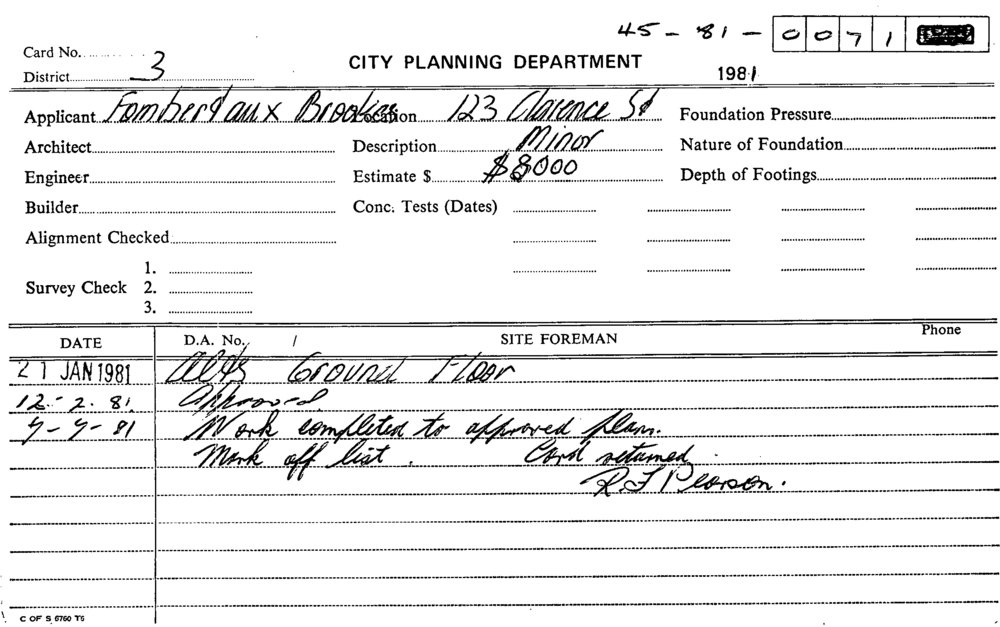 45 - 81 - 0071
Card No.
District 3
CITY PLANNING DEPARTMENT
1981
Applicant Fombertaux Brookes Location 123 Clarence St Foundation Pressure
Architect Description Minor Nature of Foundation
Engineer Estimate $ $8000 Depth of Footings
Builder Conc. Tests (Dates)
Alignment Checked
Survey Check 1.
2.
3.
DATE D.A. No. / SITE FOREMAN Phone
21 JAN 1981 Alts Ground Floor
12-2.81. Approved
7-7-81 Work completed to approved plan.
Mark off list. Card returned.
R.F Pearson.
C OF S 6760 T5